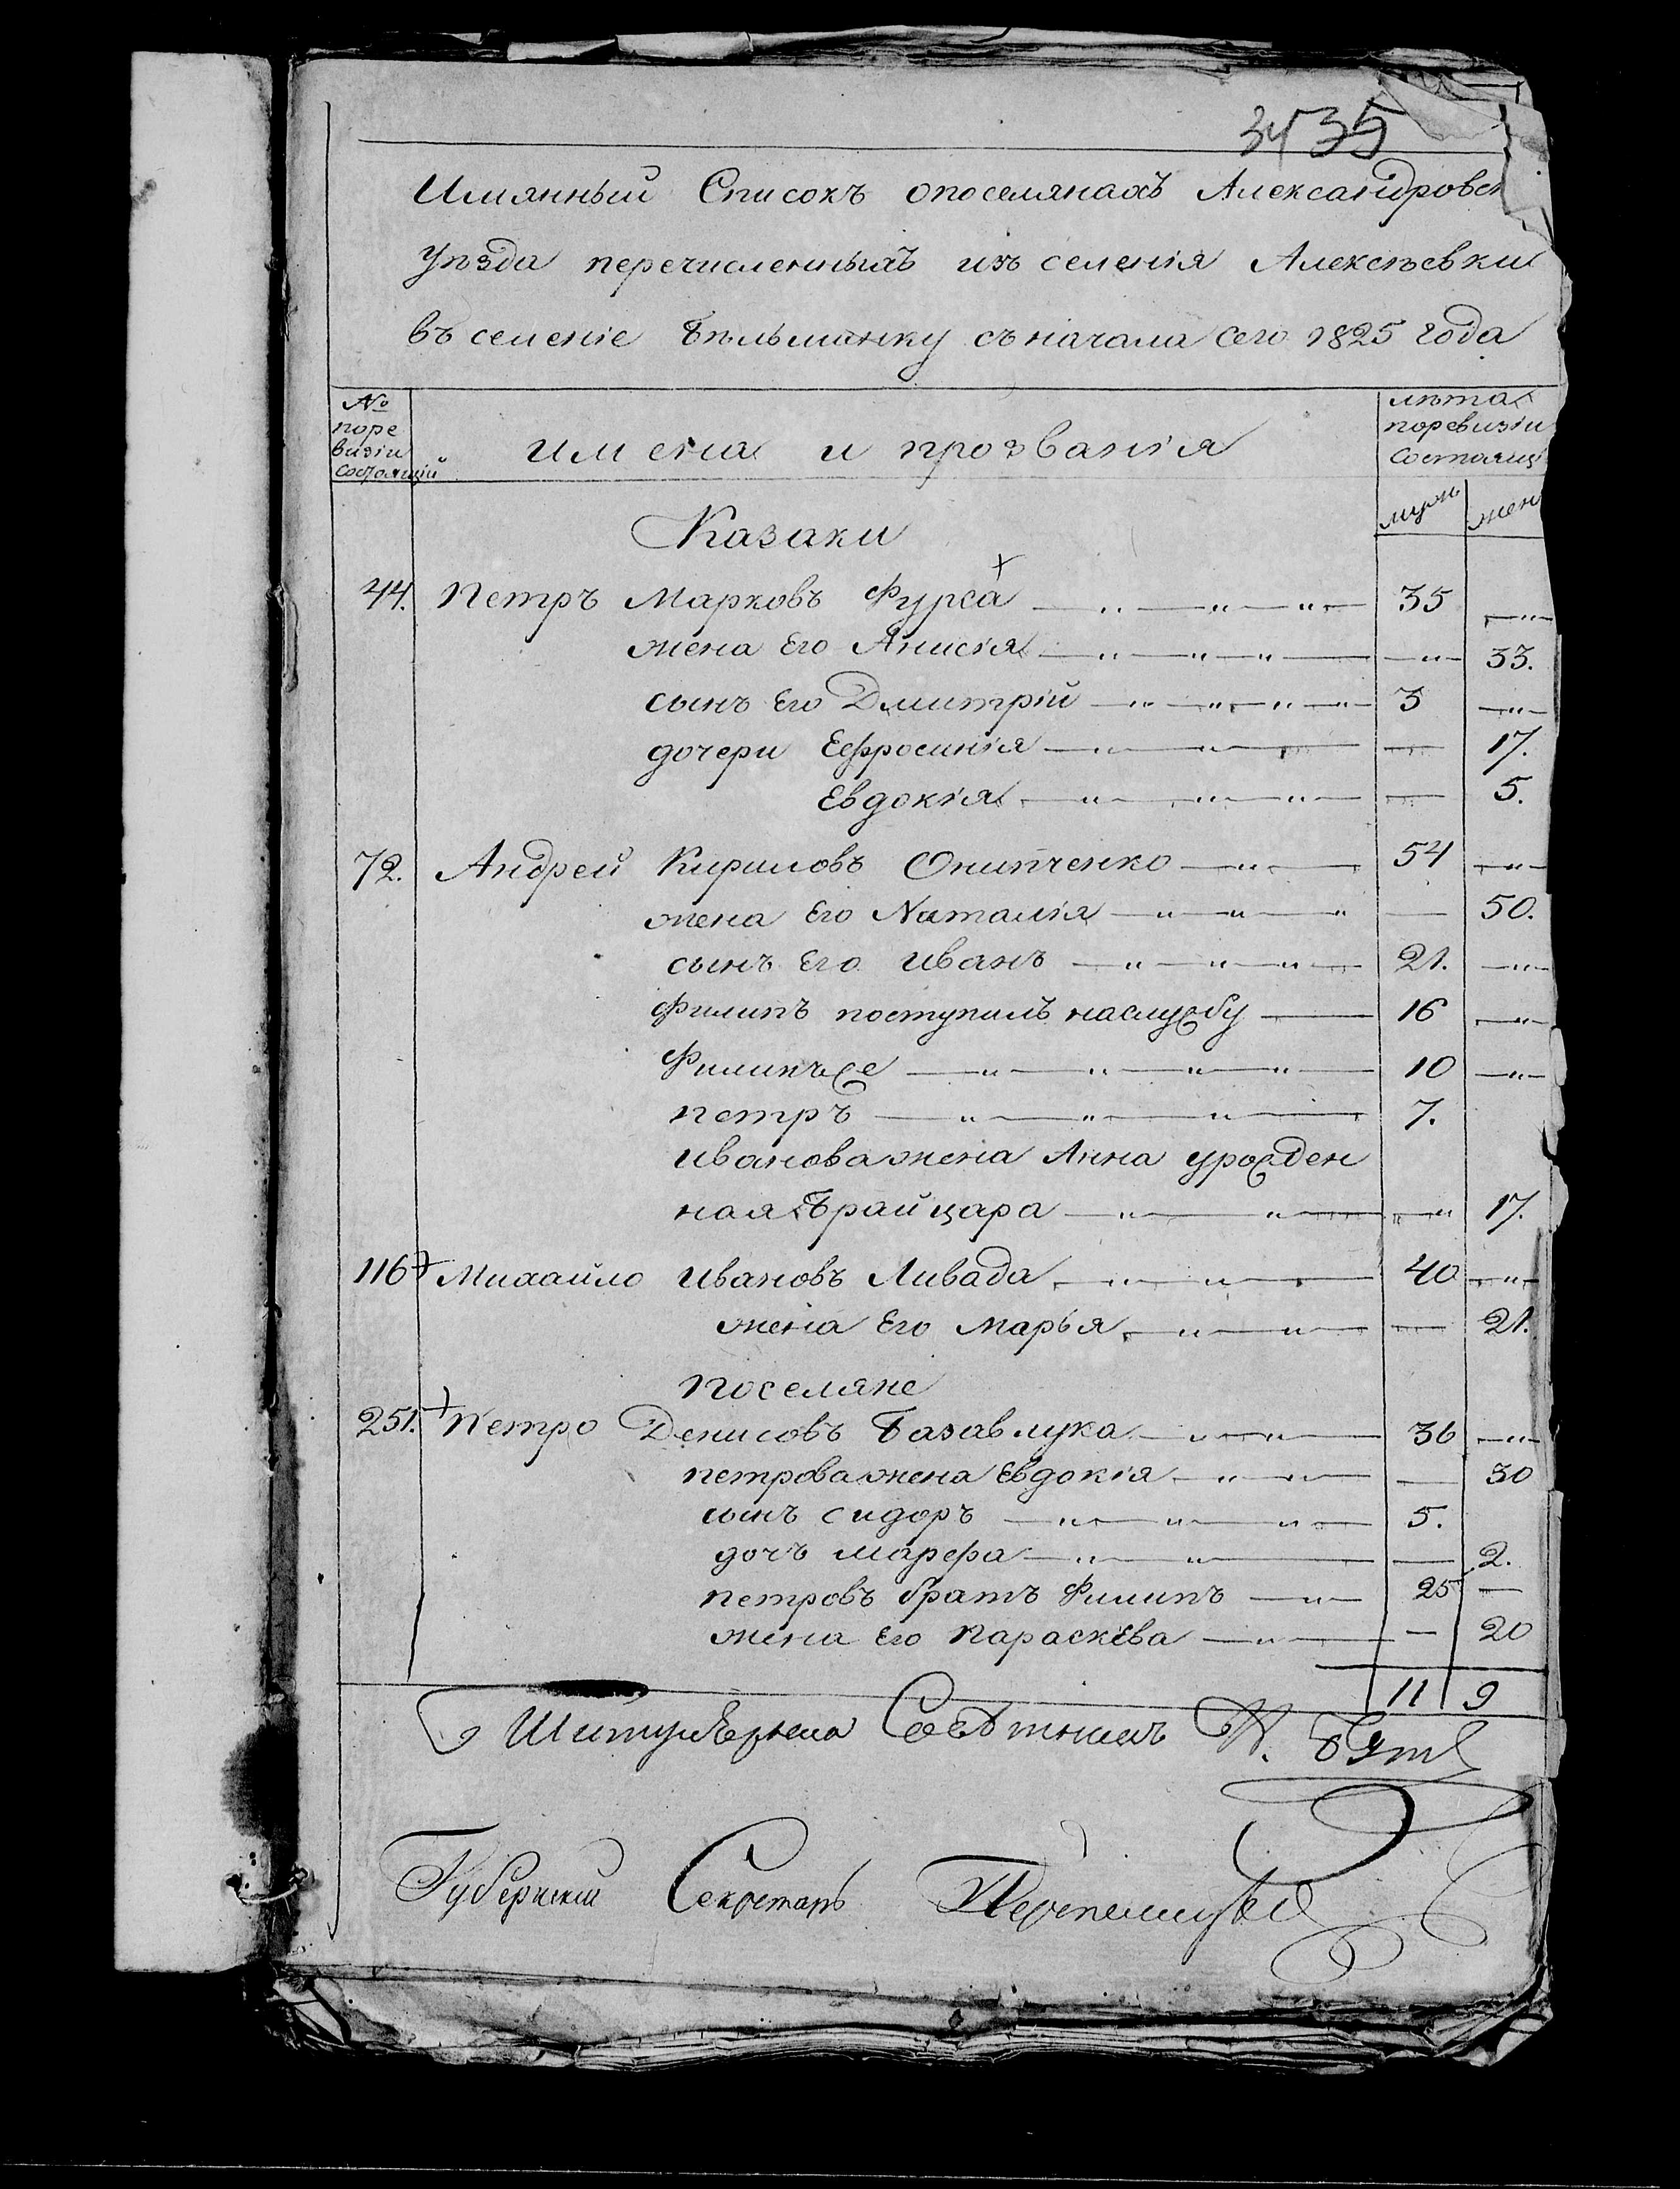 34 35
Имянный Списокъ опоселянахъ Александровск
уѣзда перечисленныхъ изъ селенія Алексѣевки
въ селеніе Бѣльманку съначала сего 1825 года
№ поре визіи состоящій
имена и прозванія
лѣта поревизіи состоящ
муж жен
Казаки
44. Петръ Марковъ Фурса 35
жена Его Анисія 33.
сынъ Его Дмитрій 3
дочери Ефросинія 17.
Евдокія 5.
72. Андрей Кириловъ Онипченко 54
жена Его Наталія 50.
сынъ Его Иванъ 21.
Филипъ поступилъ наслужбу 16
Филипъже 10
петръ 7.
Иванова жена Анна урожден
ная Брайцара 17.
116 Михайло Ивановъ Ливада 40
жена Его Марья 21.
Поселяне
251. Петро Денисовъ Базавлука 36
петрова жена Евдокія 30
сынъ Сидоръ 5.
дочъ Марефа 2.
петровъ братъ Филипъ 25
жена Его Параскева 20
11 9
Губернскій Секретарь